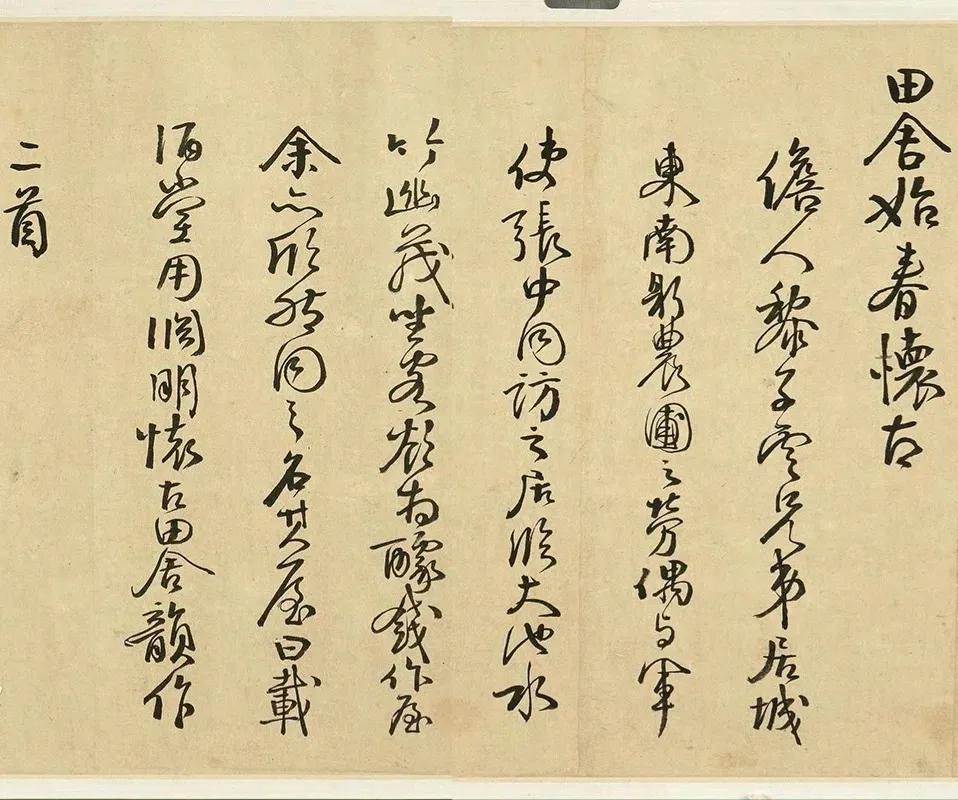 田舍始春懷古
儋人黎子雲兄弟居城
東南躬農圃之勞偶与軍
使張中同訪之居臨大池水
竹幽茂坐客欲為醵錢作屋
余亦欣然同之名其屋曰載
酒堂用淵明懷古田舍韻作
二首